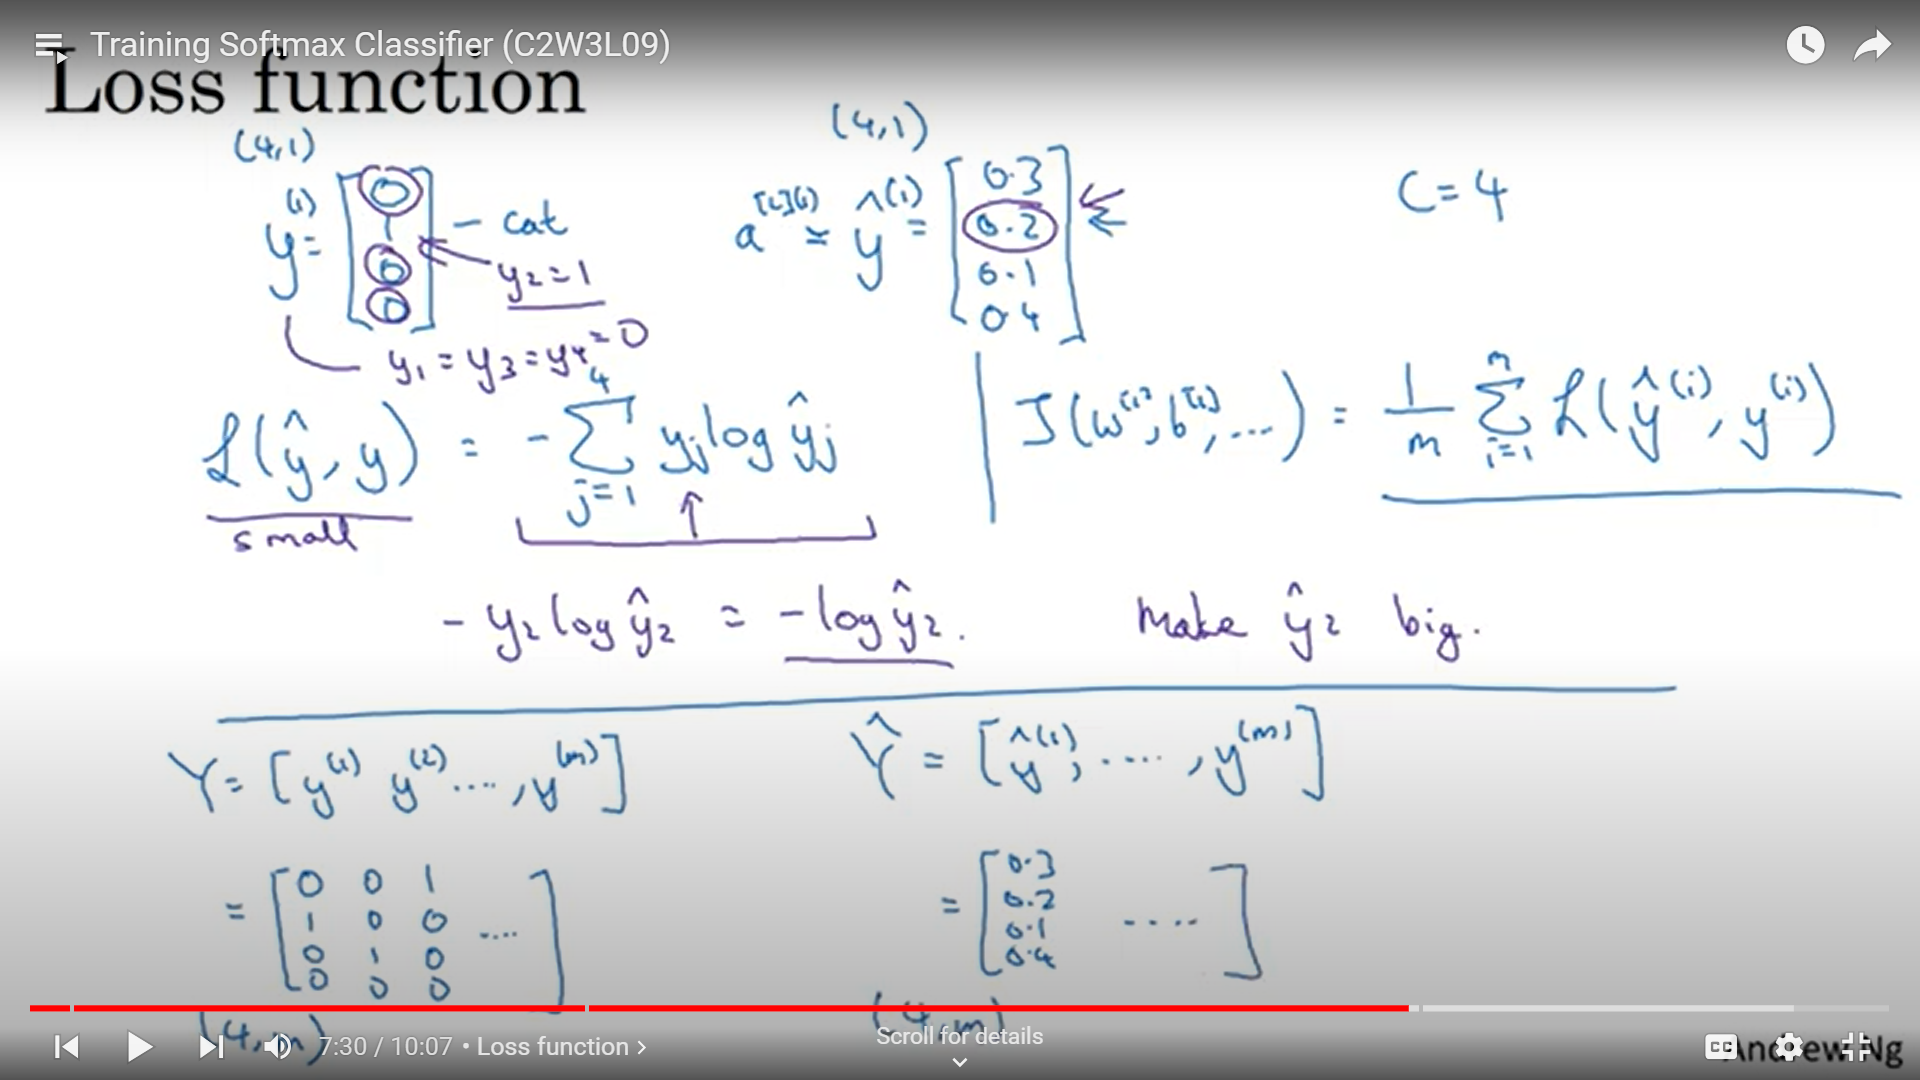 Training Softmax Classifier (C2W3L09)
Loss function
(4,1)
y⁽¹⁾ = [0 1 0 0] – cat
y₂ = 1
y₁ = y₃ = y₄ = 0
(4,1)
a^[L](i) = ŷ⁽¹⁾ = [0.3 0.2 0.1 0.4]
C = 4
ℒ(ŷ, y) = - Σ_{j=1}^{4} yⱼ log ŷⱼ
small
J(w^[1], b^[1], ...) = 1/m Σ_{i=1}^{m} ℒ(ŷ⁽ⁱ⁾, y⁽ⁱ⁾)
- y₂ log ŷ₂ = - log ŷ₂. Make ŷ₂ big.
Y = [y⁽¹⁾ y⁽²⁾ ...., y⁽ᵐ⁾]
Ŷ = [ŷ⁽¹⁾, ...., y⁽ᵐ⁾]
= [0 0 1
1 0 0 ....
0 1 0
0 0 0]
(4,m)
= [0.3
0.2 ....
0.1
0.4]
(4,m)
7:30 / 10:07 • Loss function >
Scroll for details
CC
Andrew Ng